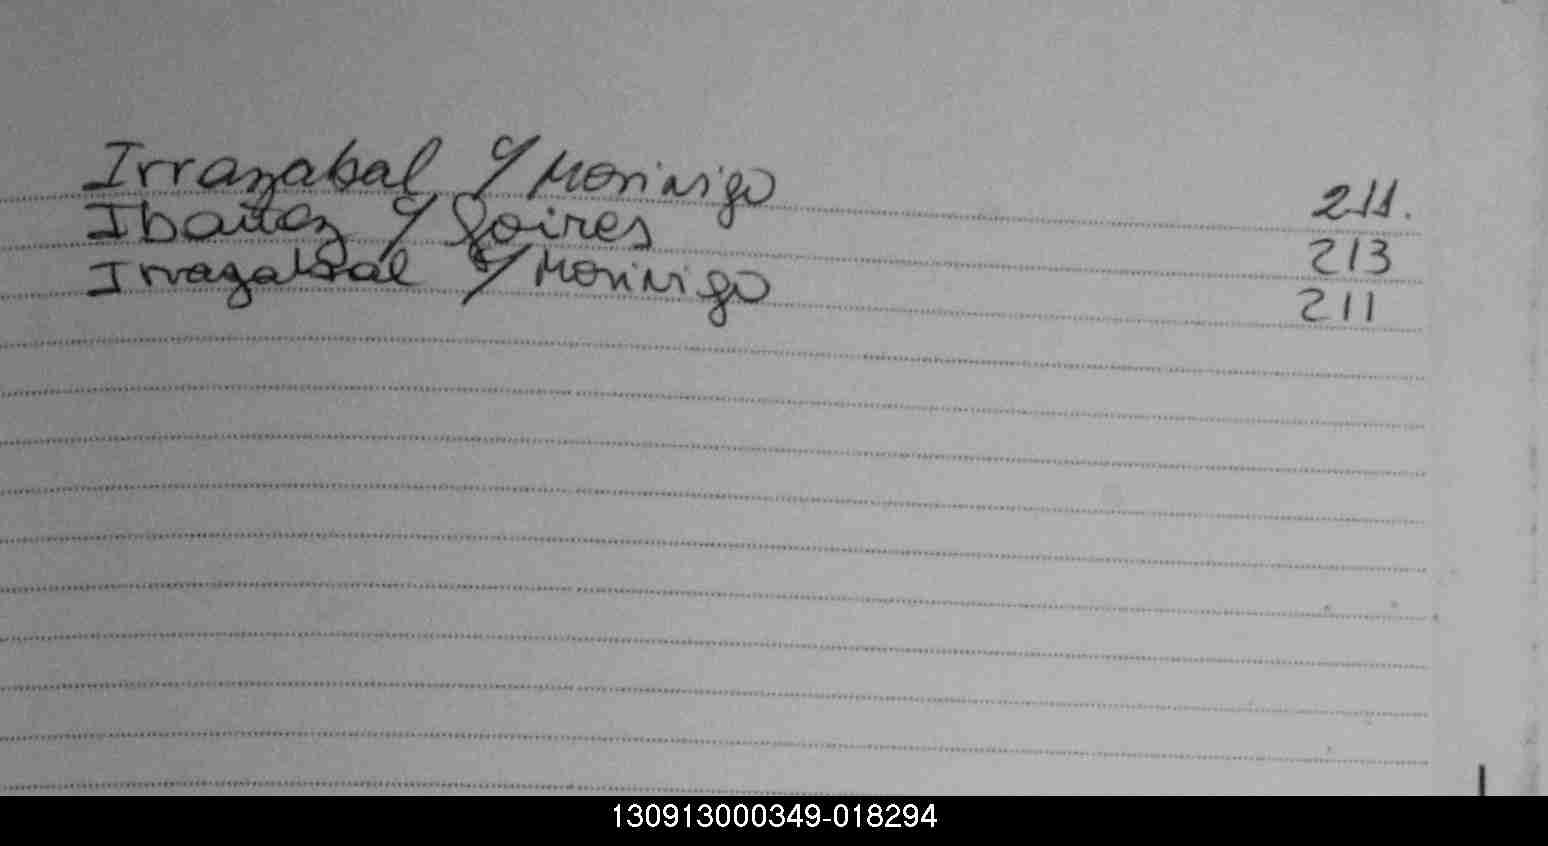 Irrazabal c/ Morinigo 211.
Ibañez c/ Soires 213
Irrazabal c/ Morinigo 211
130913000349-018294